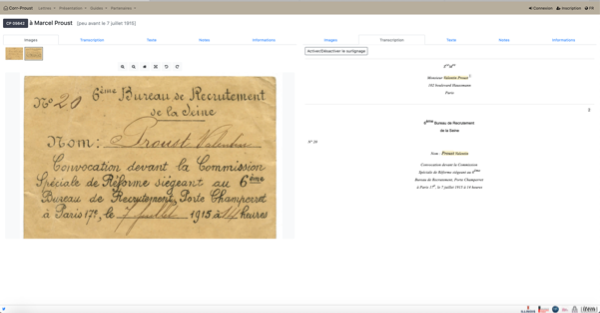 Corr-Proust Lettres Présentation Guides Partenaires Connexion Inscription FR
CP 05642 à Marcel Proust [peu avant le 7 juillet 1915]
Images Transcription Texte Notes Informations
Images Transcription Texte Notes Informations
N° 20 6ème Bureau de Recrutement
de la Seine
Nom : Proust Valentin
Convocation devant la Commission
Spéciale de Réforme siégeant au 6ème
Bureau de Recrutement, Porte Champerret
à Paris 17e, le 7 juillet 1915 à 14 heures
Activer/Désactiver le surlignage
Monsieur Valentin Proust
102 boulevard Haussmann
Paris
2
6ème Bureau de Recrutement
de la Seine
N° 20
Nom : Proust Valentin
Convocation devant la Commission
Spéciale de Réforme siégeant au 6ème
Bureau de Recrutement, Porte Champerret
à Paris 17e, le 7 juillet 1915 à 14 heures